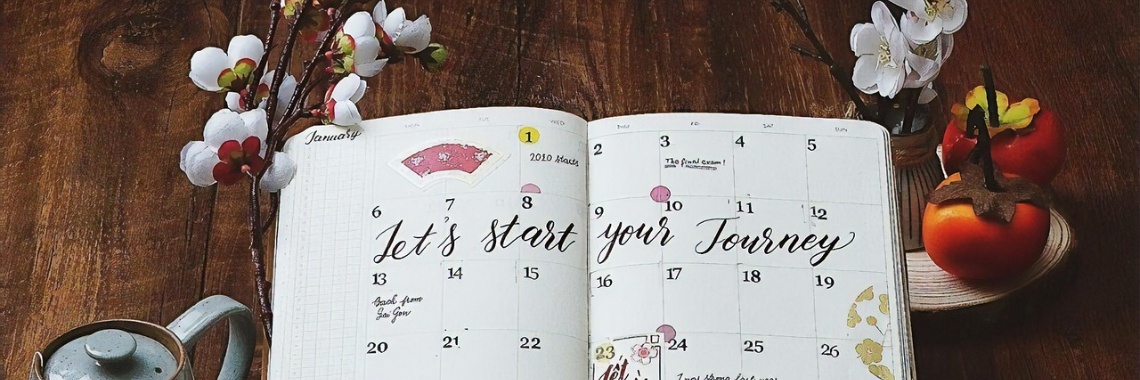 January
MON TUE WED THU FRI SAT SUN
1 2 3 4 5
2010 starts
The final exam!
6 7 8 9 10 11 12
Let's start your Journey
13 14 15 16 17 18 19
Back from
Sai Gon
20 21 22 23 24 25 26
Tết